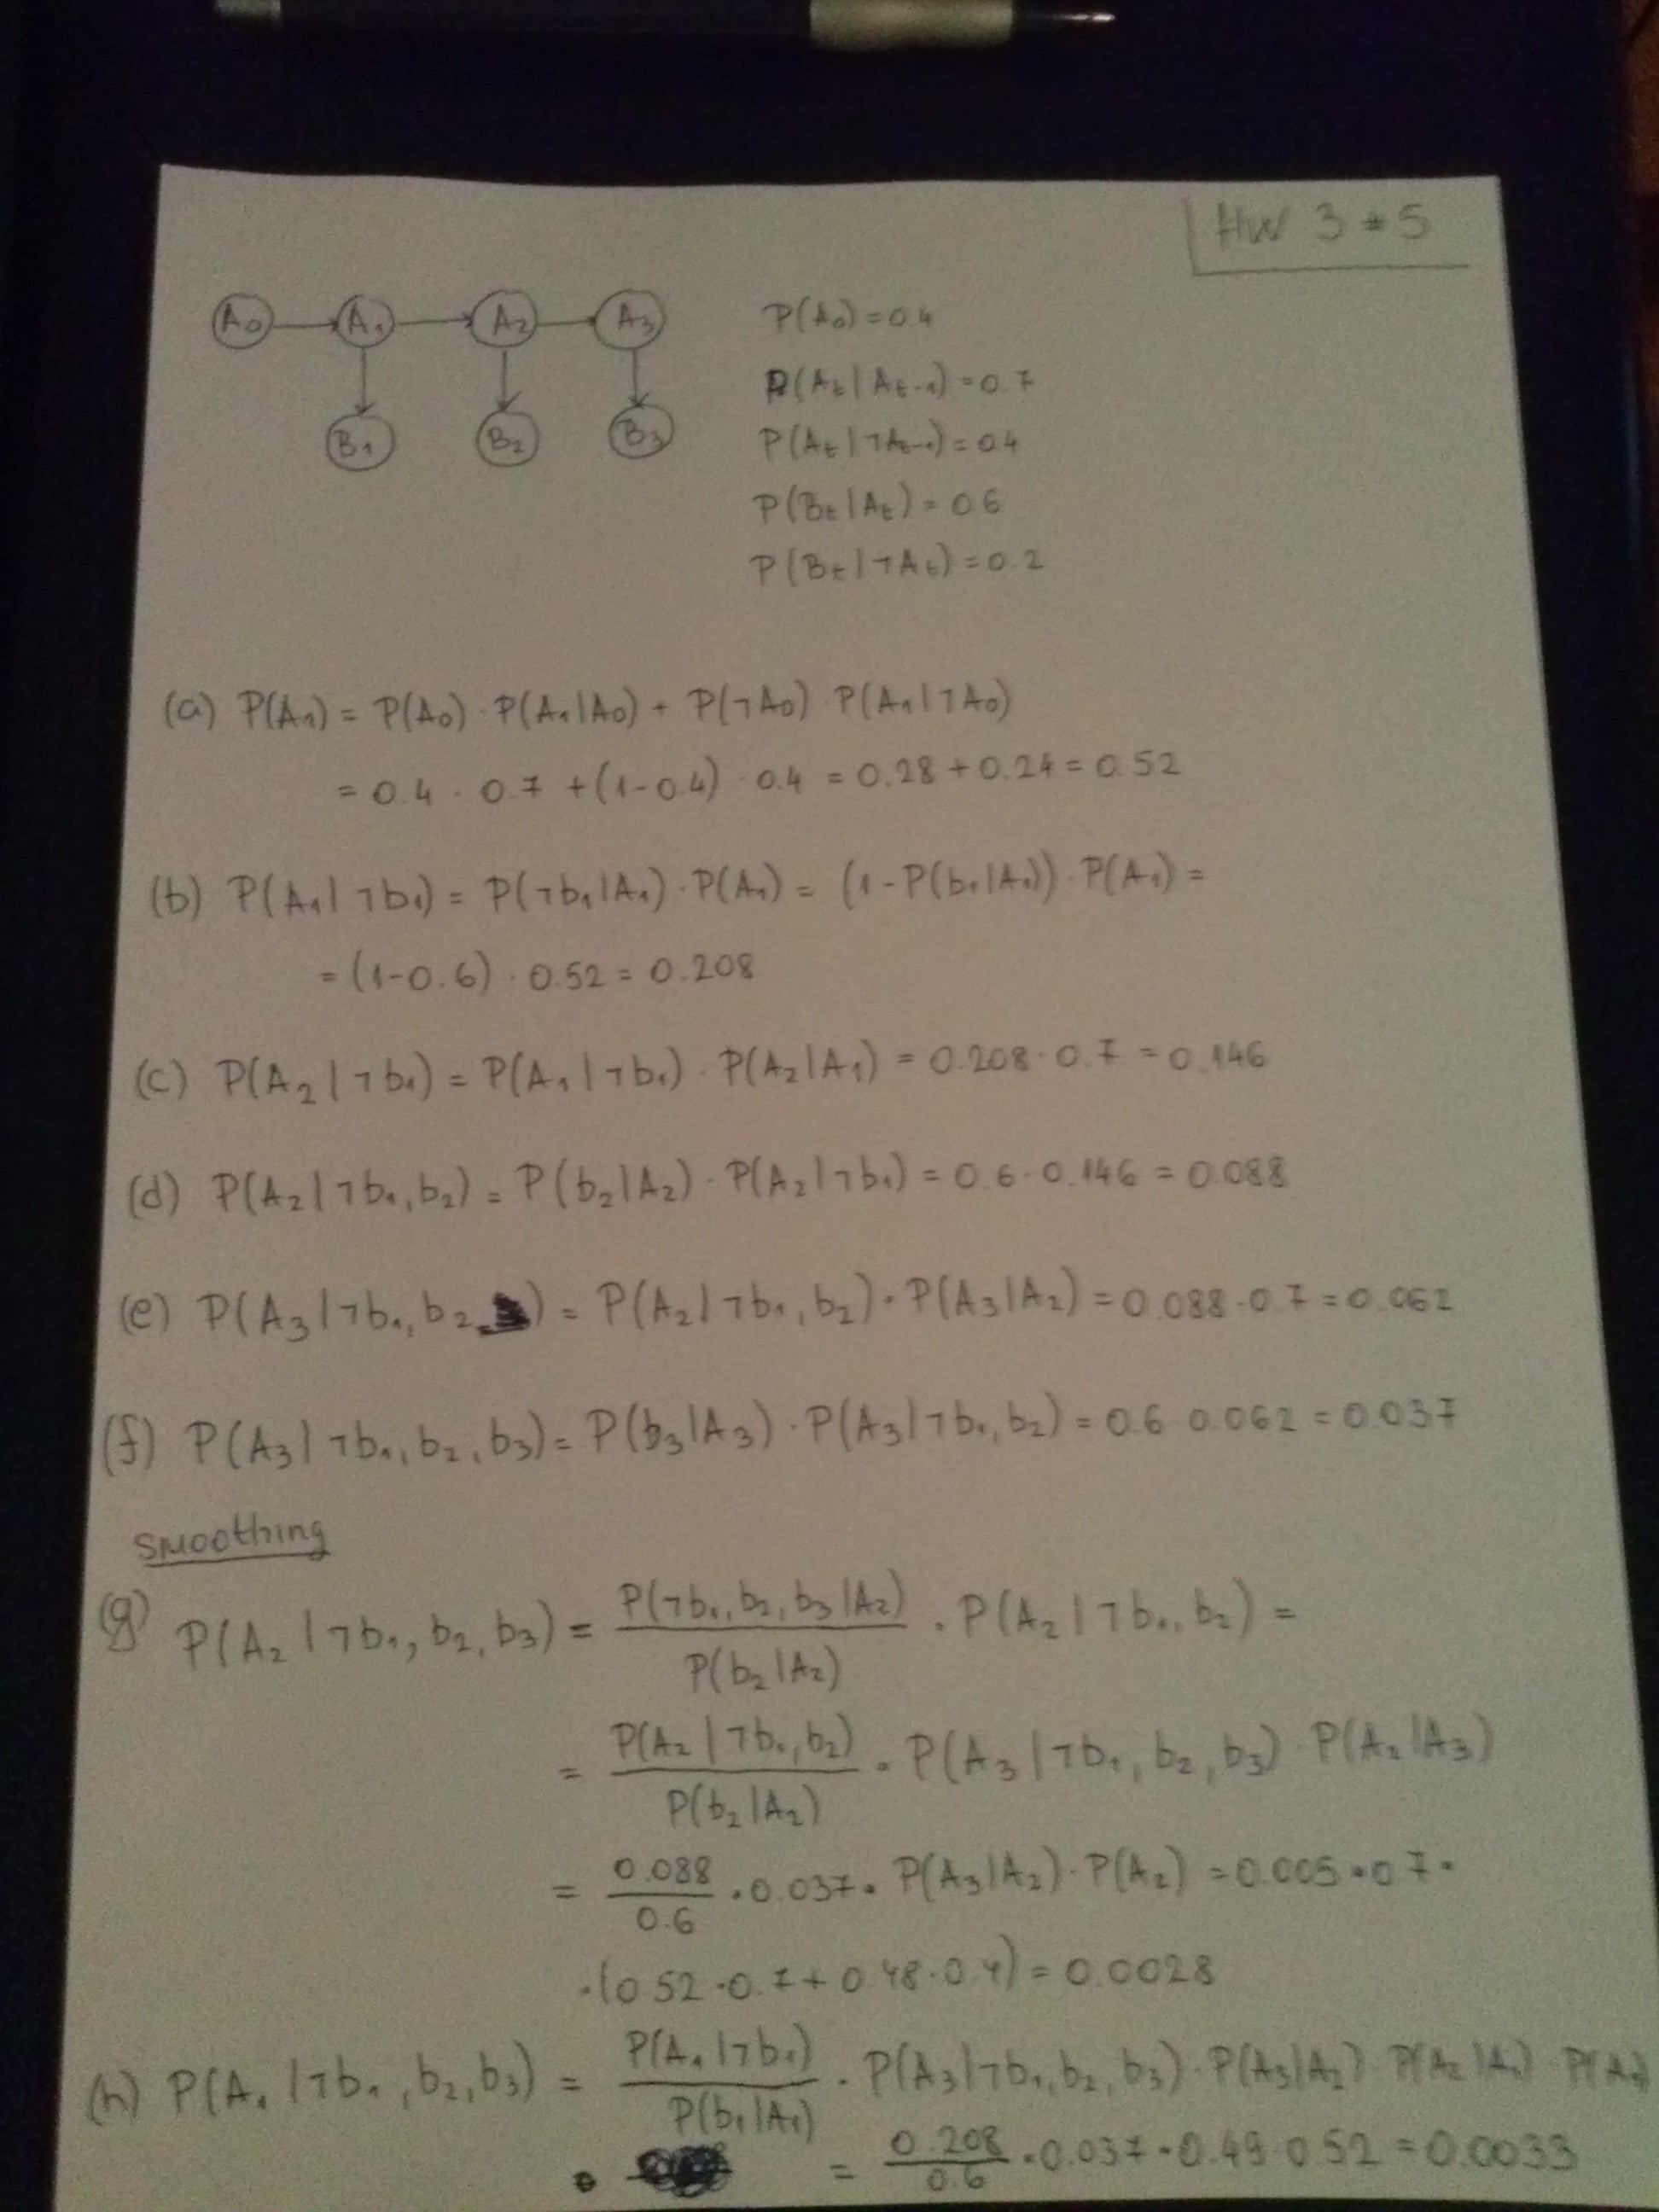 HW 3 #5
A₀ A₁ A₂ A₃
B₁ B₂ B₃
P(A₀) = 0.4
P(Aₜ | Aₜ₋₁) = 0.7
P(Aₜ | ¬Aₜ₋₁) = 0.4
P(Bₜ | Aₜ) = 0.6
P(Bₜ | ¬Aₜ) = 0.2
(a) P(A₁) = P(A₀) · P(A₁|A₀) + P(¬A₀) · P(A₁|¬A₀)
= 0.4 · 0.7 + (1-0.4) · 0.4 = 0.28 + 0.24 = 0.52
(b) P(A₁|¬b₁) = P(¬b₁|A₁) · P(A₁) = (1-P(b₁|A₁)) · P(A₁) =
= (1-0.6) · 0.52 = 0.208
(c) P(A₂|¬b₁) = P(A₁|¬b₁) · P(A₂|A₁) = 0.208 · 0.7 = 0.146
(d) P(A₂|¬b₁, b₂) = P(b₂|A₂) · P(A₂|¬b₁) = 0.6 · 0.146 = 0.088
(e) P(A₃|¬b₁, b₂) = P(A₂|¬b₁, b₂) · P(A₃|A₂) = 0.088 · 0.7 = 0.062
(f) P(A₃|¬b₁, b₂, b₃) = P(b₃|A₃) · P(A₃|¬b₁, b₂) = 0.6 · 0.062 = 0.037
smoothing
(g) P(A₂|¬b₁, b₂, b₃) = P(¬b₁, b₂, b₃|A₂) / P(b₂|A₂) · P(A₂|¬b₁, b₂) =
= P(A₂|¬b₁, b₂) / P(b₂|A₂) · P(A₃|¬b₁, b₂, b₃) · P(A₂|A₃)
= 0.088 / 0.6 · 0.037 · P(A₃|A₂) · P(A₂) = 0.005 · 0.7 ·
· (0.52 · 0.7 + 0.48 · 0.4) = 0.0028
(h) P(A₁|¬b₁, b₂, b₃) = P(A₁|¬b₁) / P(b₁|A₁) · P(A₃|¬b₁, b₂, b₃) · P(A₃|A₂) · P(A₂|A₁) · P(A₁)
= 0.208 / 0.6 · 0.037 · 0.49 · 0.52 = 0.0033